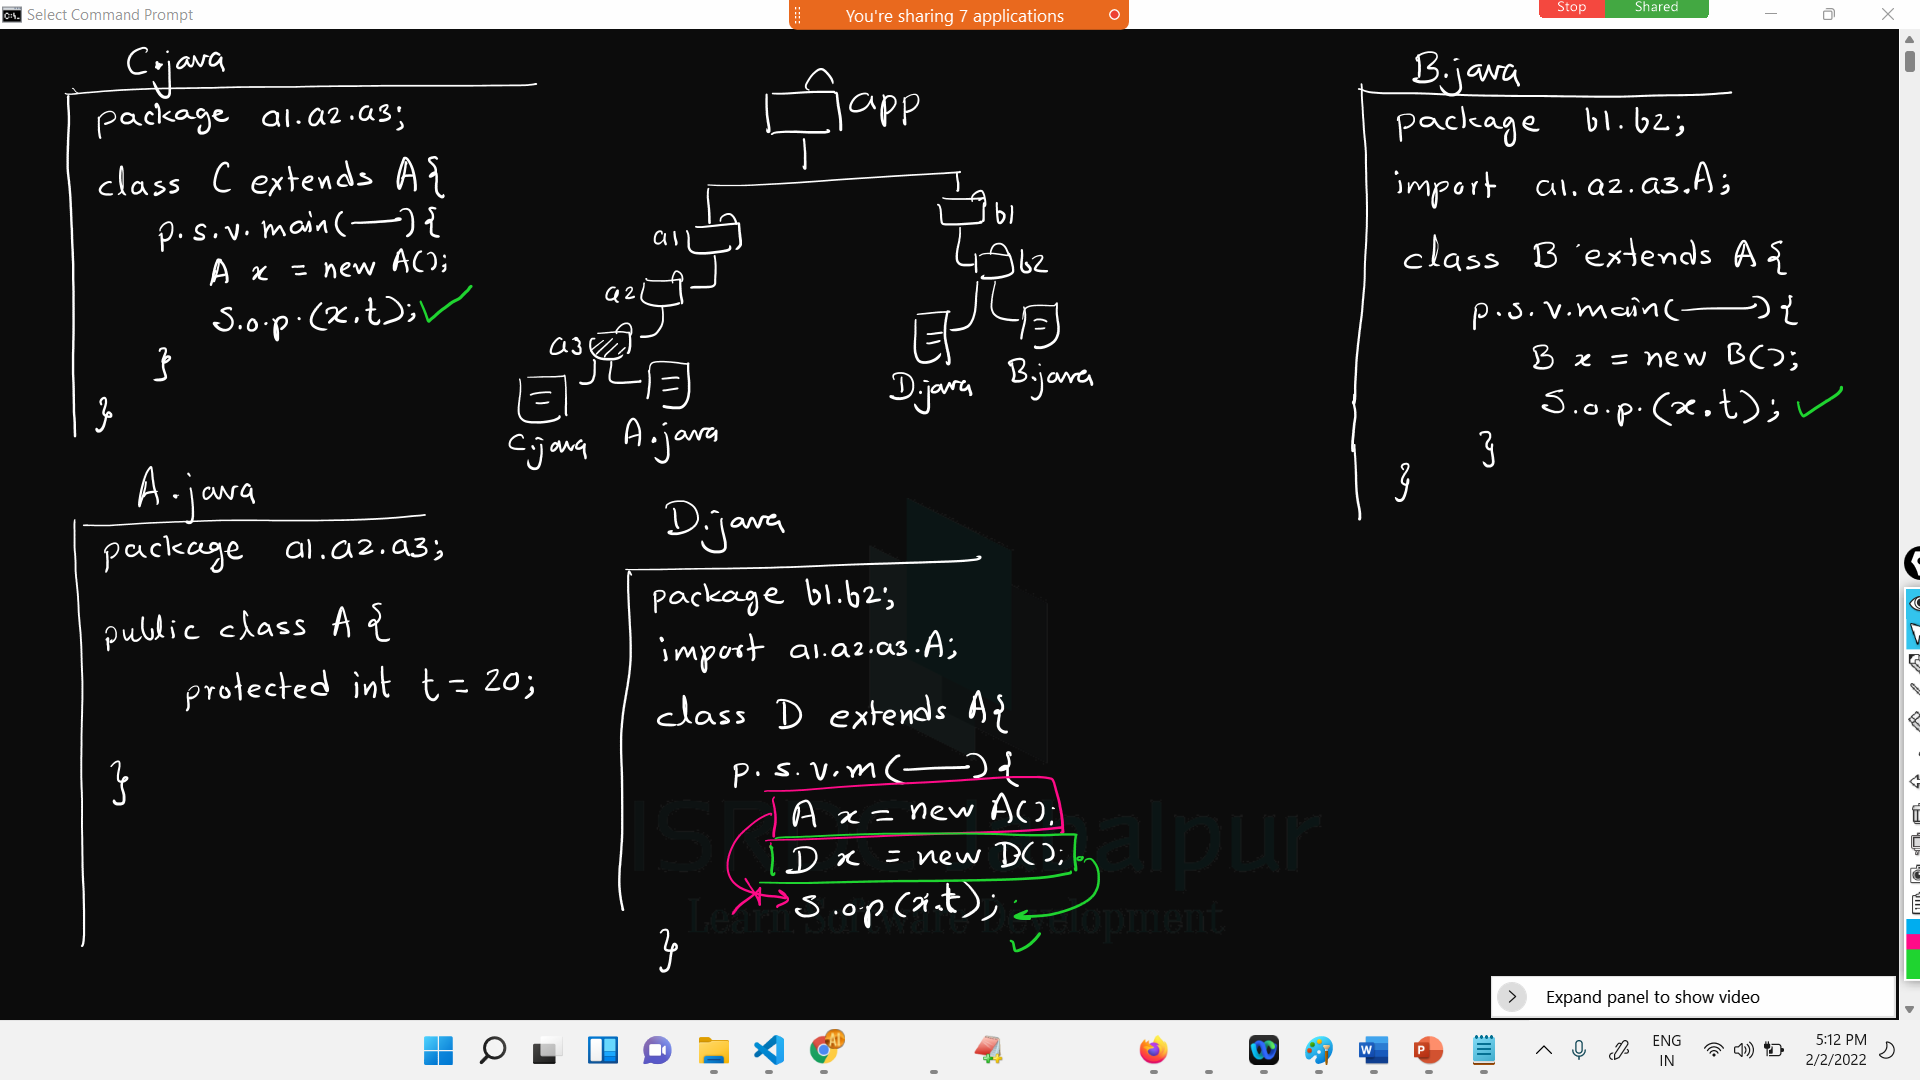 Select Command Prompt
You're sharing 7 applications
Stop
Shared
C.java
package a1.a2.a3;
class C extends A{
p.s.v.main(—){
A x = new A();
S.o.p.(x.t);
}
}
app
a1
a2
a3
C.java
A.java
b1
b2
D.java
B.java
B.java
package b1.b2;
import a1.a2.a3.A;
class B extends A{
p.s.v.main(—){
B x = new B();
S.o.p.(x.t);
}
}
A.java
package a1.a2.a3;
public class A{
protected int t = 20;
}
D.java
package b1.b2;
import a1.a2.a3.A;
class D extends A{
p.s.v.m(—){
A x = new A();
D x = new D();
S.o.p(x.t);
}
Learn Software Development
Expand panel to show video
ENG
IN
5:12 PM
2/2/2022